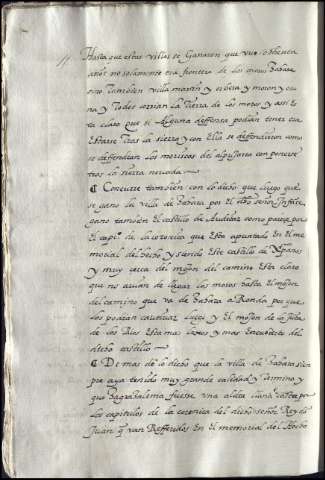 Hasta que estas villas se Ganaron que vuo ochenta
años no solamente era frontera de los moros Zahara
sino Tambien villa martin y esbera y moron y osu
na y Todos corrian la Tierra de los moros y assi es
ta claro que si alguna deffensa podian tener era
Estarse Tras la sierra y con Ella se deffendieron como
se deffendieron los moriscos del alpujarra con ponerse
tras la sierra nevada
¶ Concurre tambien con lo dicho que luego que
se gano la villa de Zahara por El dicho señor Inffante
gano tambien El castillo de Audita como pareze por
El capi.º de la coronica que Esta apuntado En el me
morial del hecho y siendo Este castillo de Xpianos
y muy cerca del mojon del camino Esta claro
que no auian de llegar los moros hasta El mojon
del camino que va de Zahara a Ronda por que
los podian cautiuar luego y El mojon de la Junta
de los Rios Esta mas lexos y mas Encubierto del
dicho castillo
¶ De mas de lo dicho que la villa de Zahara siem
pre aya tenido muy grande calidad y Termino y
que Zagrazalema fuesse vna aldea llana consta por
los capitulos de la coronica del dicho señor Rey don
Juan q van Refferidos En el memorial del Hecho